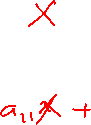 X
a₁₁x +